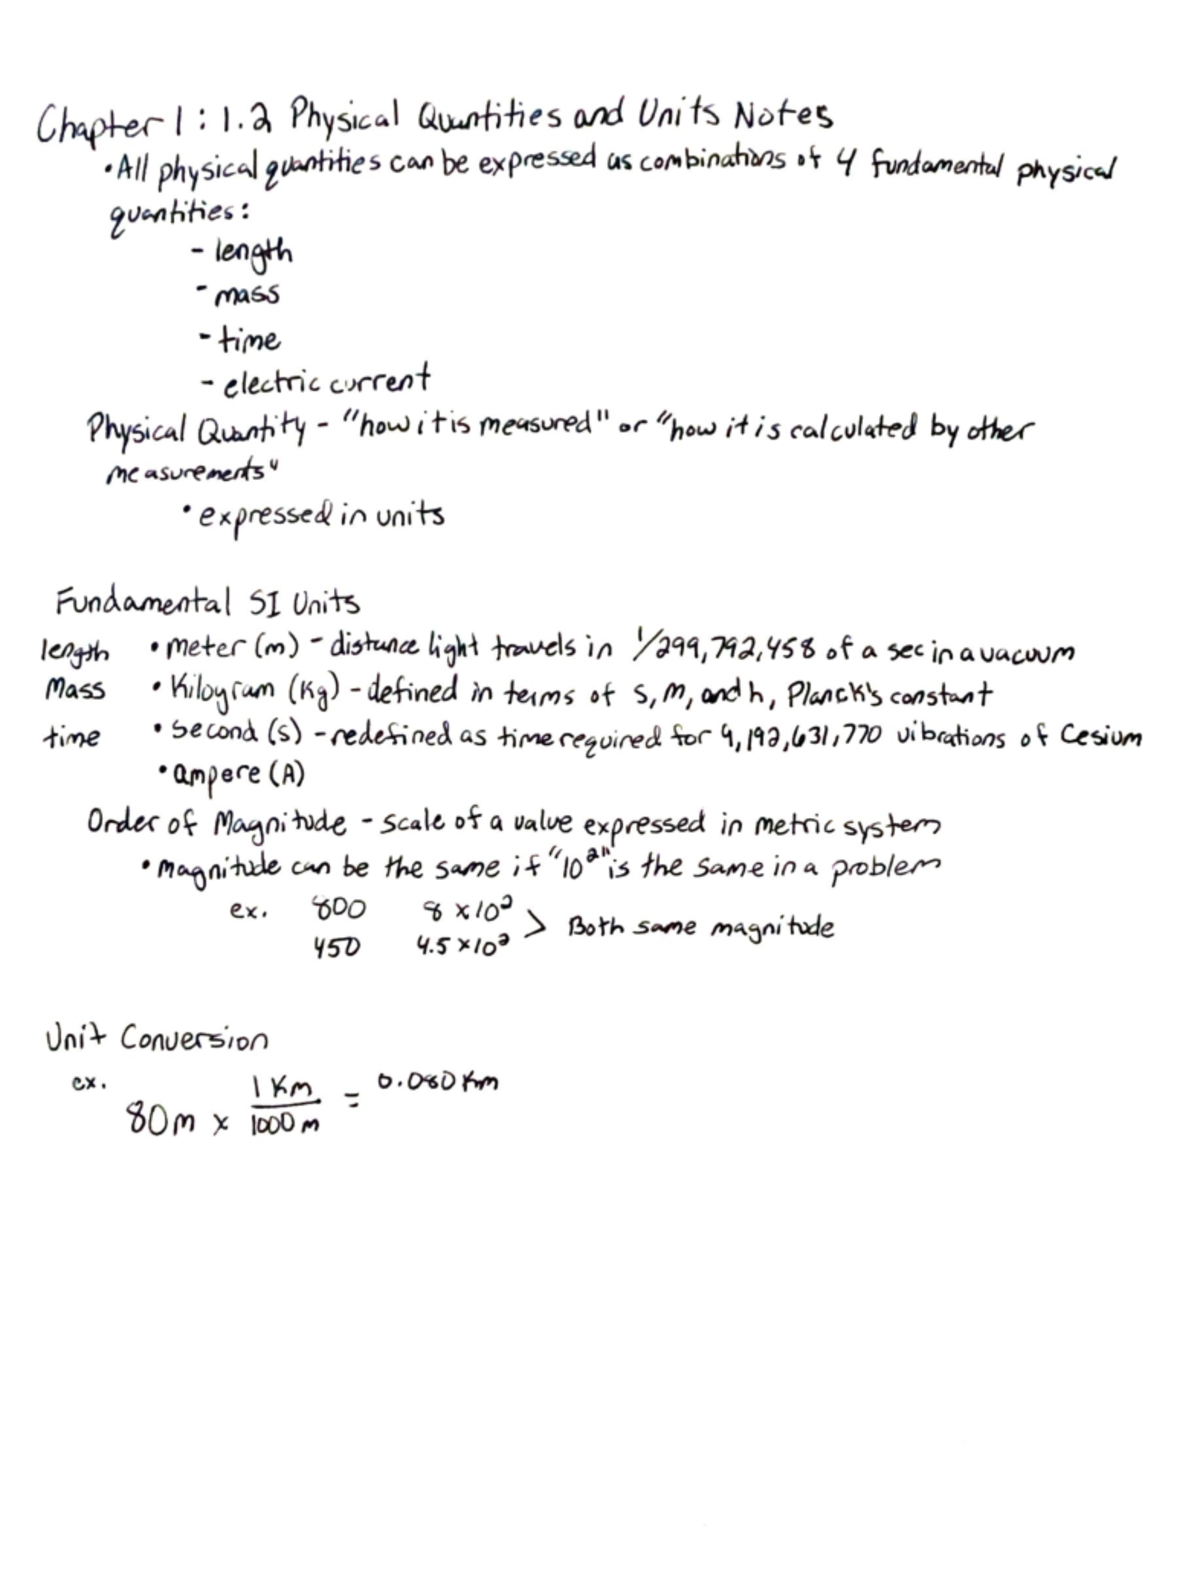 Chapter 1: 1.2 Physical Quantities and Units Notes
• All physical quantities can be expressed as combinations of 4 fundamental physical
quantities:
- length
- mass
- time
- electric current
Physical Quantity - "how it is measured" or "how it is calculated by other
measurements"
• expressed in units
Fundamental SI Units
length • meter (m) - distance light travels in 1/299,792,458 of a sec in a vacuum
Mass • Kilogram (Kg) - defined in terms of s, m, and h, Planck's constant
time • second (s) - redefined as time required for 9,192,631,770 vibrations of Cesium
• ampere (A)
Order of Magnitude - scale of a value expressed in metric system
• magnitude can be the same if "10²" is the same in a problem
ex. 800 8 x 10² > Both same magnitude
450 4.5 x 10²
Unit Conversion
ex. 80m x 1 Km / 1000 m = 0.080 Km